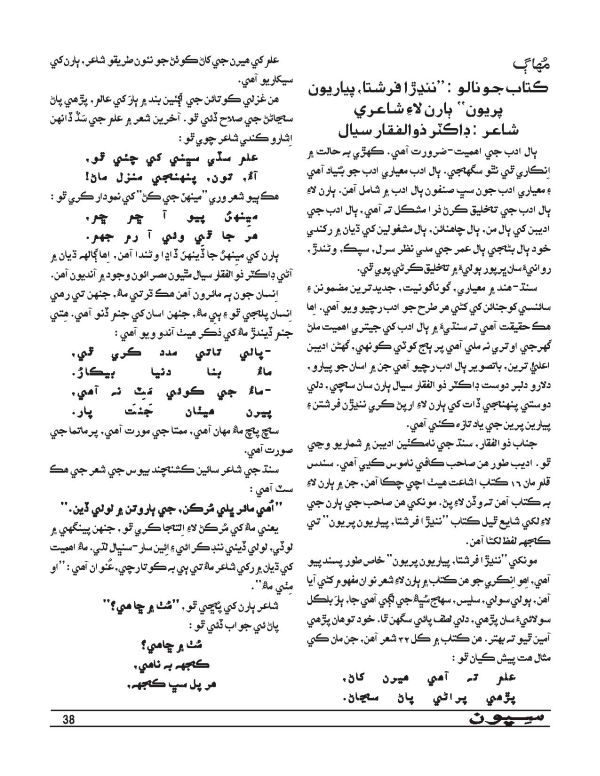 مُهاڳ
ڪتاب جو نالو : ”ننڍڙا فرشتا، پياريون
پريون“ ٻارن لاءِ شاعري
شاعر : ڊاڪٽر ذوالفقار سيال
ٻال ادب جي اهميت-ضرورت آهي. ڪهڙي به حالت ۾
اِنڪاري ٿي نٿو سگهجي. ٻال ادب معياري ادب جو بُنياد آهي
۽ معياري ادب جون سڀ صنفون ٻال ادب ۾ شامل آهن. ٻارن لاءِ
ٻال ادب جي تخليق ڪرڻ ذرا مشڪل ته آهي، ٻال ادب جي
اديبن کي ٻال من، ٻال چاهنائن، ٻال مشغولين کي ڌيان ۾ رکندي
خود ٻال بڻجي ٻال عمر جي مدي نظر سرل، سپڪ، وڻندڙ،
روانيءَ سان ڀرپور ٻوليءَ ۾ تخليق ڪرڻي پوي ٿي.
سنڌ-هند ۾ معياري، گوناگونيت، جديدترين مضمونن ۽
سائنسي کوجنائن کي کڻي هر طرح جو ادب رچيو ويو آهي. اِها
هڪ حقيقت آهي ته سنڌيءَ ۾ ٻال ادب کي جيتري اهميت ملڻ
گهرجي اوتري نه ملي آهي پر ٻاجُ کوٽي ڪونهي، گهڻن اديبن
اعليٰ ترين، باتصوير ٻال ادب رچيو آهي جن ۾ اسان جو پيارو،
دلارو دلبر دوست ڊاڪٽر ذوالفقار سيال ٻارن سان سچي، دلي
دوستي پنهنجي ڏات کي ٻارن لاءِ ارپڻ ڪري ننڍڙن فرشتن ۽
پيارين پرين جي ياد تازه ڪئي آهي.
جناب ذوالفقار، سنڌ جي نامڪٿين اديبن ۾ شماريو وڃي
ٿو. اديب طور هن صاحب ڪافي ناموس ڪمايو آهي. سندس
قلم مان ١٦ ڪتاب اشاعت هيٺ اچي چڪا آهن، جن ۾ ٻارن لاءِ
به ڪتاب آهن ته وڏن لاءِ پڻ. مونکي هن صاحب جي ٻارن جي
لاءِ لکي شايع ٿيل ڪتاب ”ننڍڙا فرشتا، پياريون پريون“ تي
ڪجهه لفظ لکڻا آهن.
مونکي ”ننڍڙا فرشتا، پياريون پريون“ خاص طور پسند پيو
آهي، اِهو اِنڪري جو هن ڪتاب ۾ ٻارن لاءِ شعر نوان مفهوم کڻي آيا
آهن، ٻولي سولي، سليس، سهڄ سُڀاءُ جي لڳي آهي جا، ٻار بلڪل
سولائيءَ سان پڙهي، دلي لطف پائي سگهن ٿا. خود تو هان پڙهي
آمين ٿيو ته بهتر. هن ڪتاب ۾ ڪل ٣٢ شعر آهن، جن مان ڪي
مثال هت پيش ڪيان ٿو :
علم ته آهي هيرن کاڻ،
پڙهي پرائي پاڻ سڃاڻ.
علم کي هيرن جي کاڻ ڪوٺڻ جو نئون طريقو شاعر، ٻارن کي
سيکاريو آهي.
هن غزلي ڪوتائن جي ٻئين بند ۾ ٻار کي عالم، پڙهي پاڻ
سڃاڻڻ جي صلاح ڏئي ٿو. آخرين شعر ۾ علم جي سَڏَ ڏانهن
اِشارو ڪندي شاعر چوي ٿو :
علم سڏي سڀني کي چئي ٿو،
آءُ، تون، پنهنجي منزل ماڻ!
هڪٻيو شعر وري ”مينهن جي ڪڻ“ کي نمودار ڪري ٿو :
مِينهڙُ پيو آ ڇر ڇر،
هر جا ٿي وئي آ رم جهم.
ٻارن کي مينهڙ جا ڏينهن ڏاڍا وڻندا آهن، اِها ڳالهه ڌيان ۾
آڻي ڊاڪٽر ذوالفقار سيال مٿيون مصرائون وجود ۾ آنديون آهن.
اِنسان جون ٻه مائرون آهن هڪ ڌرتي ماءُ، جنهن تي رهي
اِنسان پلجي ٿو ۽ ٻي ماءُ، جنهن اسان کي جنم ڏنو آهي. هِتي
جنم ڏيندڙ ماءُ کي ذڪر هيٺ آندو ويو آهي :
-پالي تاتي مدد ڪري ٿي،
ماءُ بنا دنيا بيڪار.
-ماءُ جي ڪوئي مَٽِ نه آهي،
پيرن هيٺان جَنت پار.
سڄ پچ ماءُ مهان آهي، ممتا جي مورت آهي، پرماتما جي
صورت آهي.
سنڌ جي شاعر سائين ڪشنچند بيوس جي شعر جي هڪ
سٽ آهي :
”اُهي مائر پلي مُرڪن، جي ٻاروتن ۾ لولي ڏين.“
يعني ماءُ کي مُرڪڻ لاءِ اِلتجا ڪري ٿو، جنهن پينگهي ۾
لوڏي، لولي ڏيئي ننڊ ڪرائي ۽ اِئين سار-سنڀال لڌي. ماءُ اهميت
کي ڌيان ۾ رکي شاعر ماءُ تي ٻي به ڪوتا رچي، عُنوان آهي : ”او
مِٺي ماءُ“.
شاعر ٻارن کي پُڇي ٿو، ”مُٺ ۾ ڇاهي؟“
پاڻ ئي جواب ڏئي ٿو :
مُٺ ۾ ڇاهي؟
ڪجهه به ناهي،
هر پل سڀ ڪجهه،
38
سپون